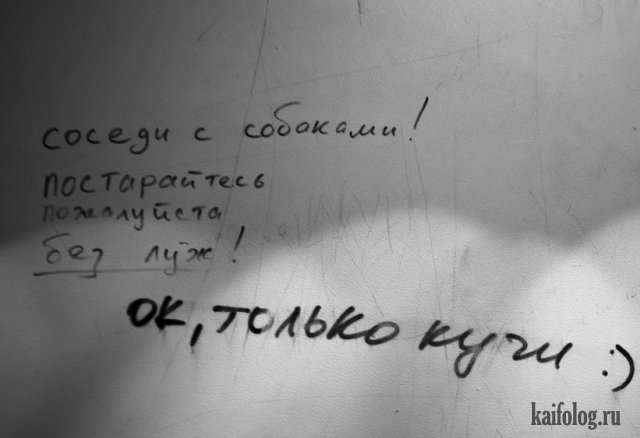 соседи с собаками!
постарайтесь
пожалуйста
без луж!
ок, только кучи :)
kaifolog.ru